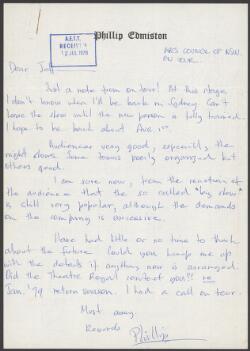 Phillip Edmiston
A.E.T.T.
RECEIVED
12 JUL 1978
ARTS COUNCIL OF NSW.
ON TOUR.
Dear Jeff
Just a note from on tour! At this stage
I don't know when I'll be back in Sydney. Can't
leave the show until the new person is fully trained.
I hope to be back about Aug. 1st.
Audiences very good, especially the
night shows. Some towns poorly organised but
others good.
I am sure now, from the reaction of
the audience that the so called "big show"
is still very popular, although the demands
on the company is excessive.
Have had little or no time to think
about the future. Could you keep me up
with the details if anything new is arranged.
Did the Theatre Royal contact you?? re
Jan. '79 return season. I had a call on tour.
Must away.
Regards
Phillip